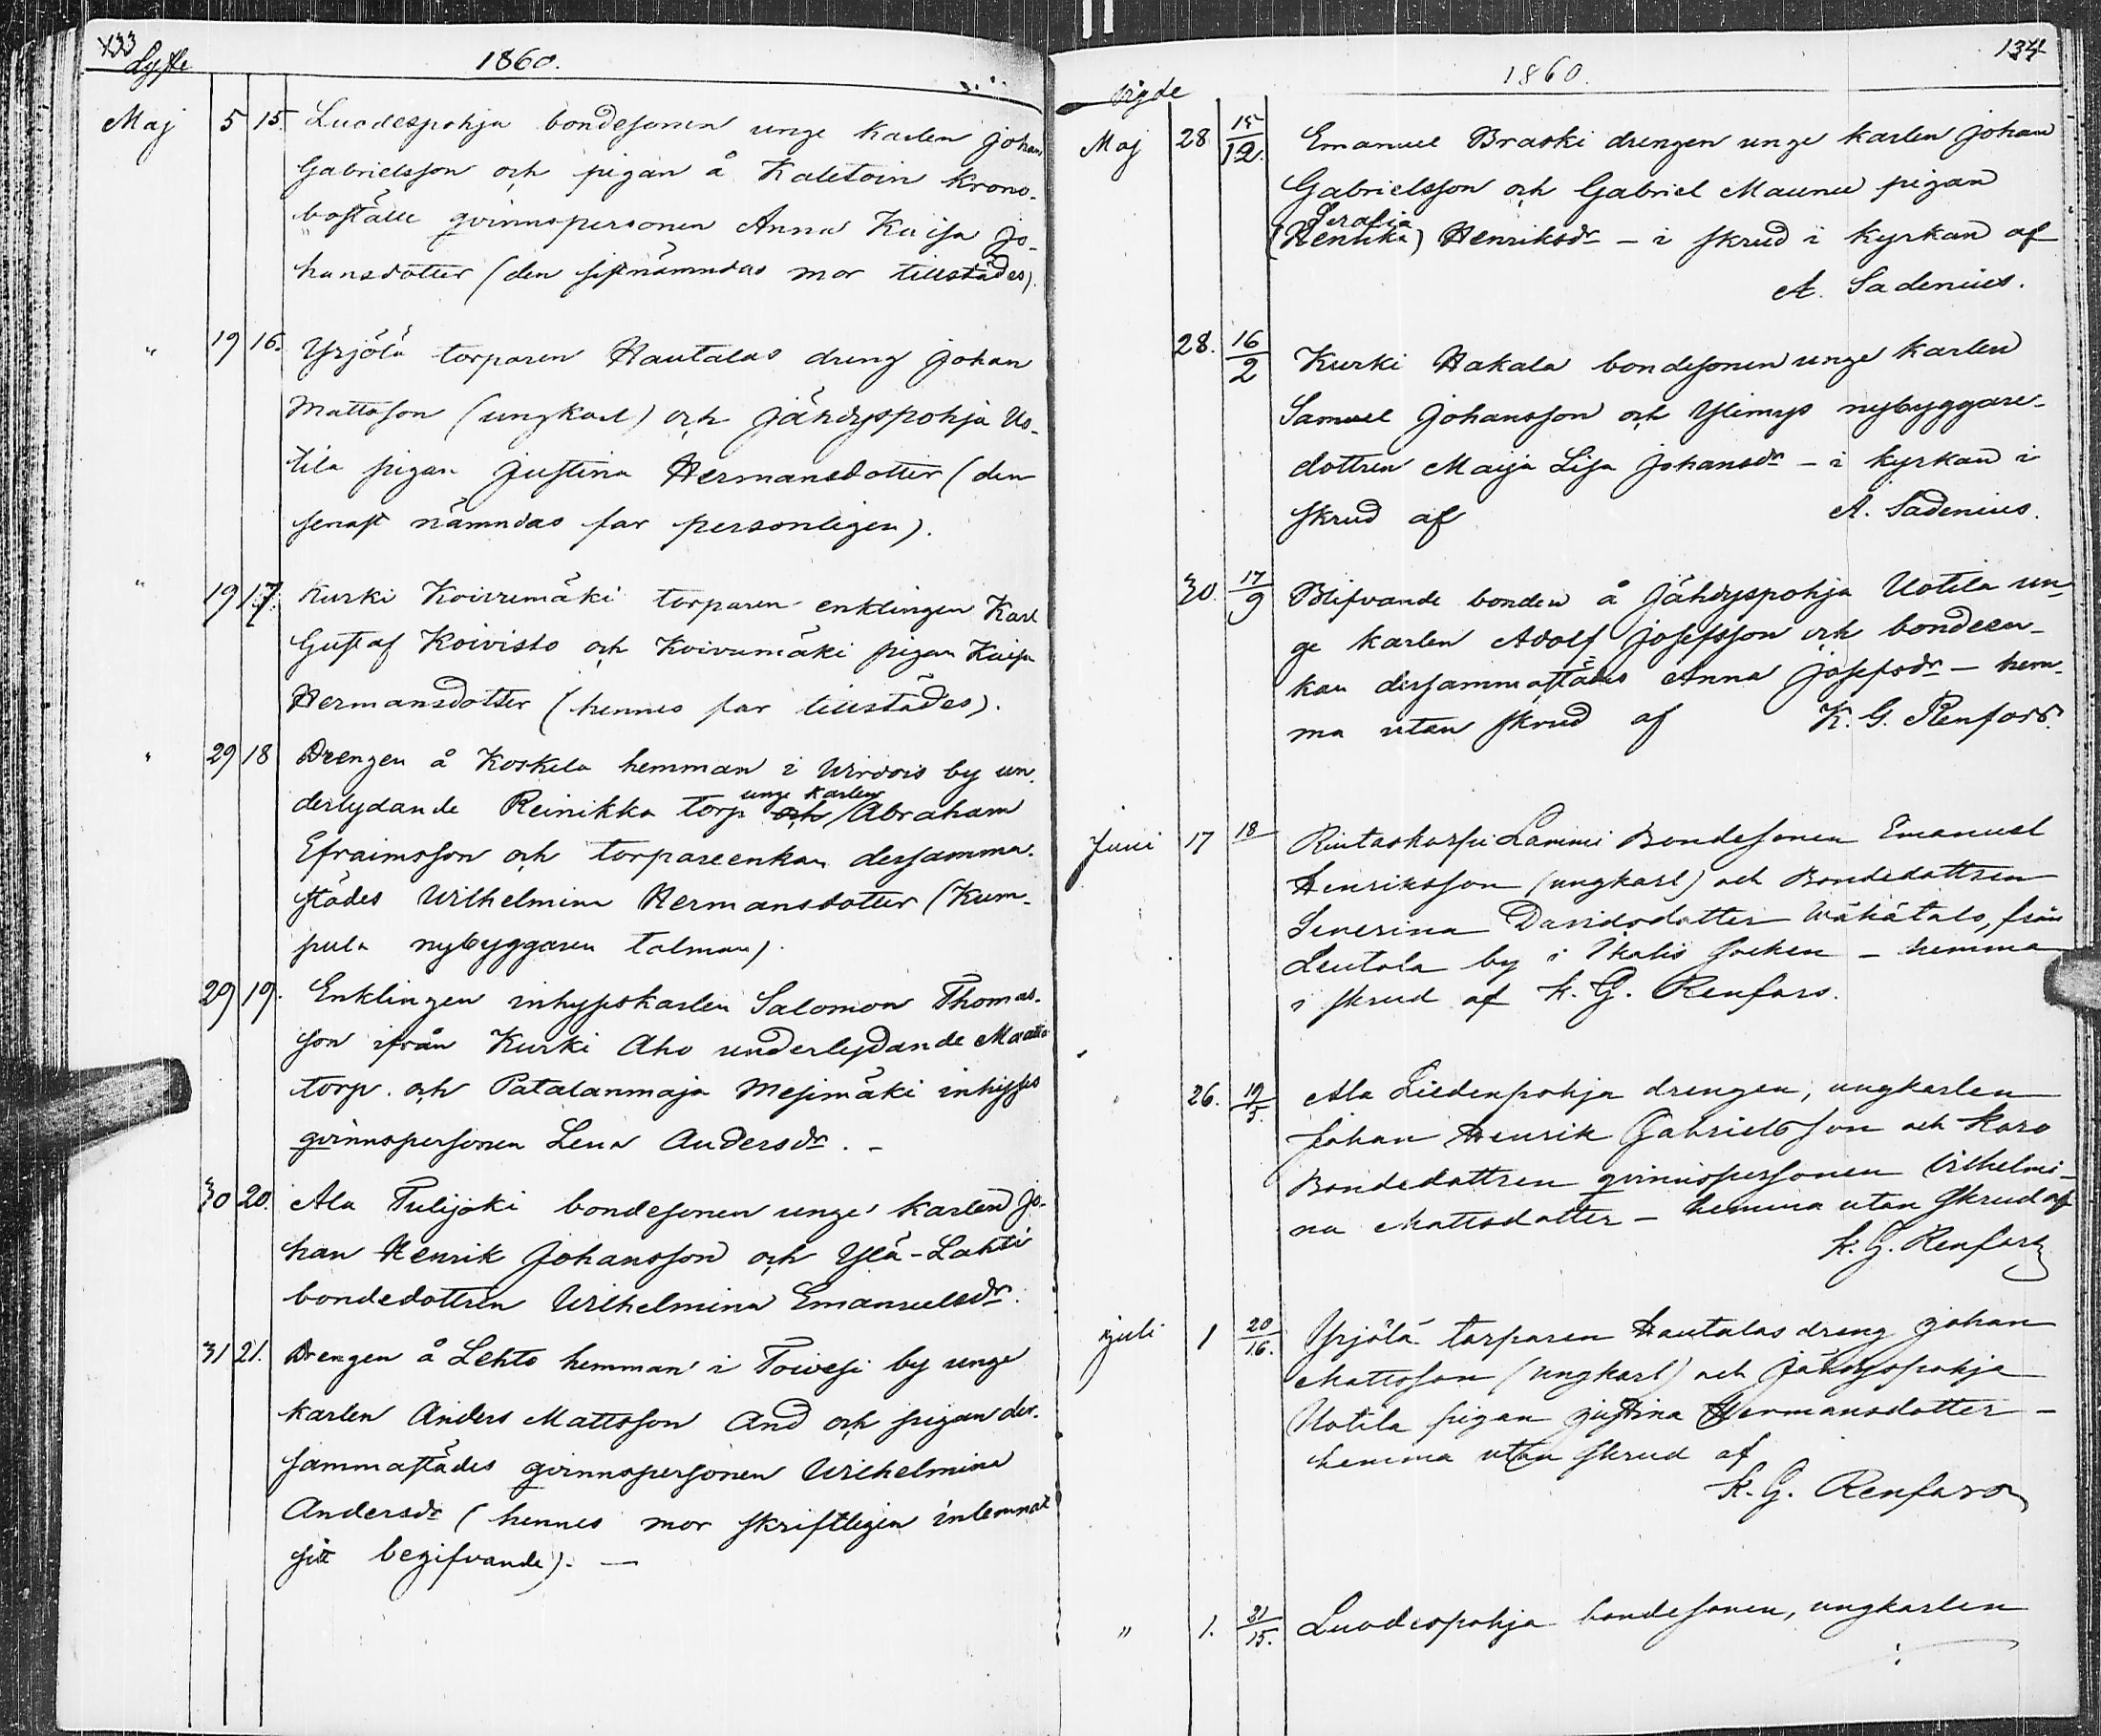 133
Lyste
1860.
Maj 5 15. Luodespohja bondesonen unge karlen Johan
Gabrielsson och pigan å Kaletoin krono-
boställe qvinnspersonen Anna Kaisa Jo-
hansdotter (den sistnämndas mor tillstädes).
" 19 16. Yrjölä torparen Hautalas dreng Johan
Mattsson (ungkarl) och Jähdyspohja Uo-
tila pigan Justina Hermansdotter (den
senast nämndas far personligen).
" 19 17. Kurki Koivumäki torparen enklingen Karl
Gustaf Koivisto och Koivumäki pigan Kaisa
Hermansdotter (hennes far tillstädes).
" 29 18 Drengen å Koskela hemman i Wirdois by un-
derlydande Reinikka torp och unge karlen Abraham
Efraimsson och torpareenkan dersamma-
städes Wilhelmina Hermansdotter (Kum-
pula nybyggaren talman).
29 19. Enklingen inhyseskarlen Salomon Thomas-
son ifrån Kurki Aho underlydande
torp. och Patalanmaja Mesimäki inhyses
qvinnspersonen Lena Andersdr. -
30 20. Ala Tulijoki bondesonen unge karlen Jo-
han Henrik Johansson och Ylä-Lahti
bondedottren Wilhelmina Emanuelsdr.
31 21. Drengen å Lehto hemman i Toivesi by unge
karlen Anders Mattsson And och pigan der-
sammastädes qvinnspersonen Wilhelmina
Andersdr (hennes mor skriftligen inlemnat
sitt begifvande). —
134
1860.
vigde
Maj 28 15/12. Emanuel Braski drengen unge karlen Johan
Gabrielsson och Gabriel Maunu pigan
Serafia
(Henrika) Henriksdr - i skrud i kyrkan af
A. Sadenius.
28. 16/2 Kurki Hakala bondesonen unge karlen
Samuel Johansson och Ylimys nybyggare-
dottren Maija Lisa Johansdr - i kyrkan i
skrud af A. Sadenius.
30. 17/9 Blifvande bonden å Jähdyspohja Uotila un-
ge karlen Adolf Josefsson och bondeen-
kan dersammastädes Anna Josefsdr - hem-
ma utan skrud af K. G. Renfors.
Juni 17 18 Rintaskorpi Lammi Bondesonen Emanuel
Henriksson (ungkarl) och Bondedottren
Severina Davidsdotter Wähätalo, från
Leutola by i Ikalis socken - hemma
i skrud af K. G. Renfors.
26. 19/5. Ala Liedenpohja drengen, ungkarlen
Johan Henrik Gabrielsson och Koro
Bondedottren qvinnspersonen Vilhelmi-
na Mattsdotter - hemma utan skrud af
K. G. Renfors
Juli 1 20/16. Yrjölä torparen Hautalas dreng Johan
Mattsson (ungkarl) och Jähdyspohja
Uotila pigan Justina Hermansdotter -
hemma utan skrud af
K. G. Renfors
" 1. 21/15. Luodespohja bondesonen, ungkarlen